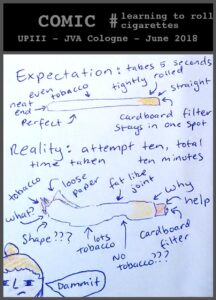 COMIC # learning to roll
cigarettes
UPIII - JVA Cologne - June 2018
Expectation: takes 5 seconds
even tobacco
tightly rolled
straight
neat end
Perfect
Cardboard filter
Stays in one spot
Reality: attempt ten, total
time taken ten minutes
tobacco
loose paper
fat like joint
why
what?
help
Shape???
lots tobacco
NO tobacco???
Cardboard filter
Dammit